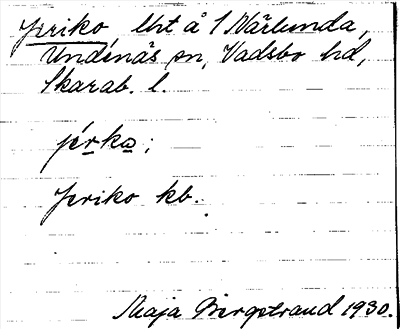 Jeriko, lht å 1 Wärlunda,
Undenäs sn, Vadsbo hd,
Skarab. l.
jérka;
Jeriko kb.
Maja Bergstrand 1930.